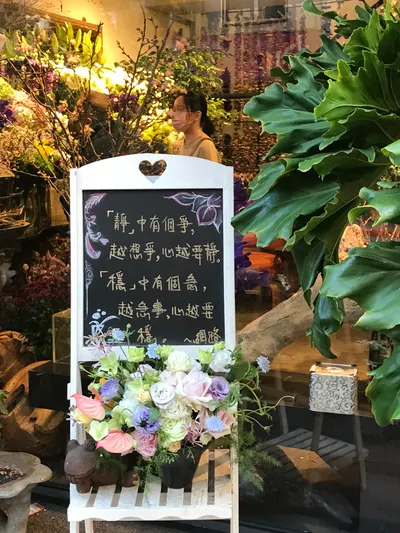 「靜」中有個爭,
越想爭,心越要靜。
「穩」中有個急,
越急事,心越要
穩。 ~網路